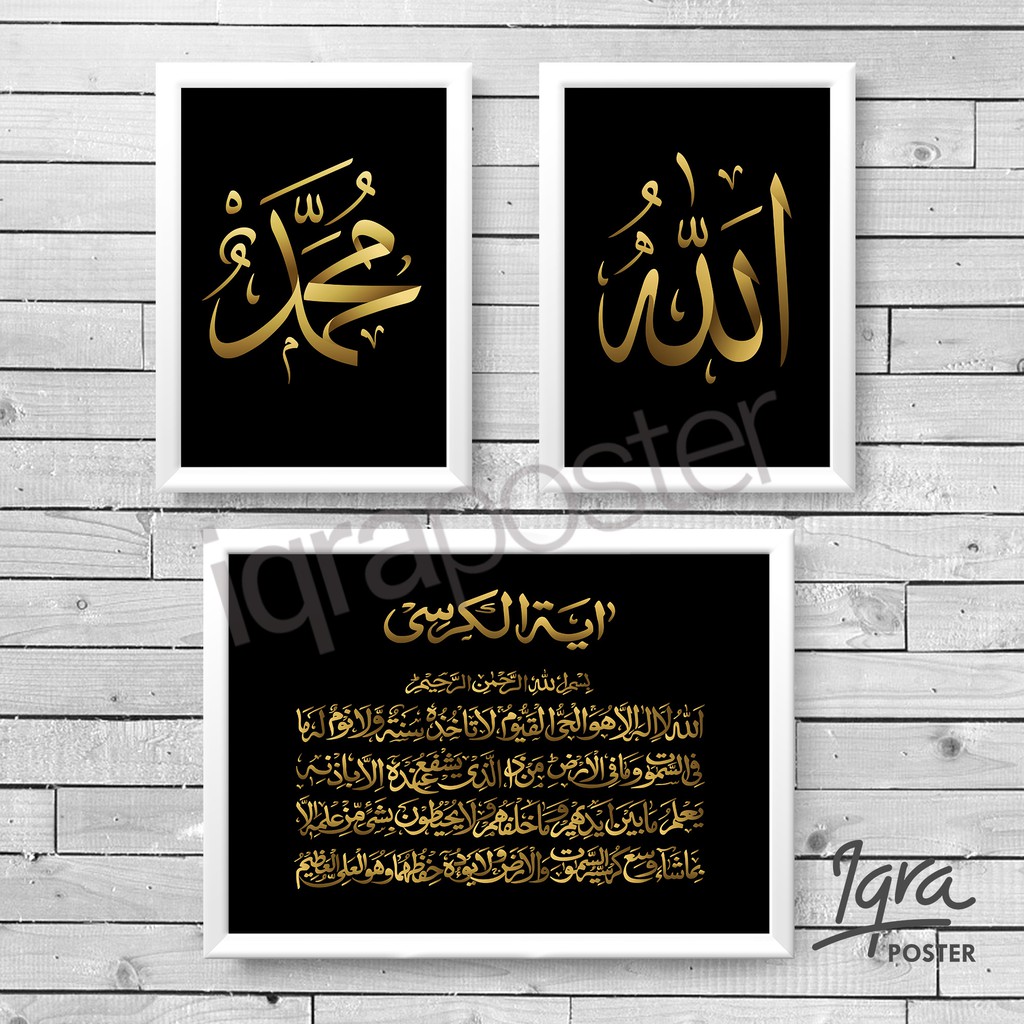 الله
محمد
iqraposter
اية الكرسى
بسم الله الرحمن الرحيم
الله لا اله الا هو الحي القيوم لا تأخذه سنة ولا نوم له ما
في السموت وما في الارض من ذا الذي يشفع عنده الا باذنه
يعلم ما بين ايديهم وما خلفهم ولا يحيطون بشئ من علمه الا
بما شاء وسع كرسيه السموت والارض ولا يؤده حفظهما وهو العلي العظيم
Iqra
POSTER